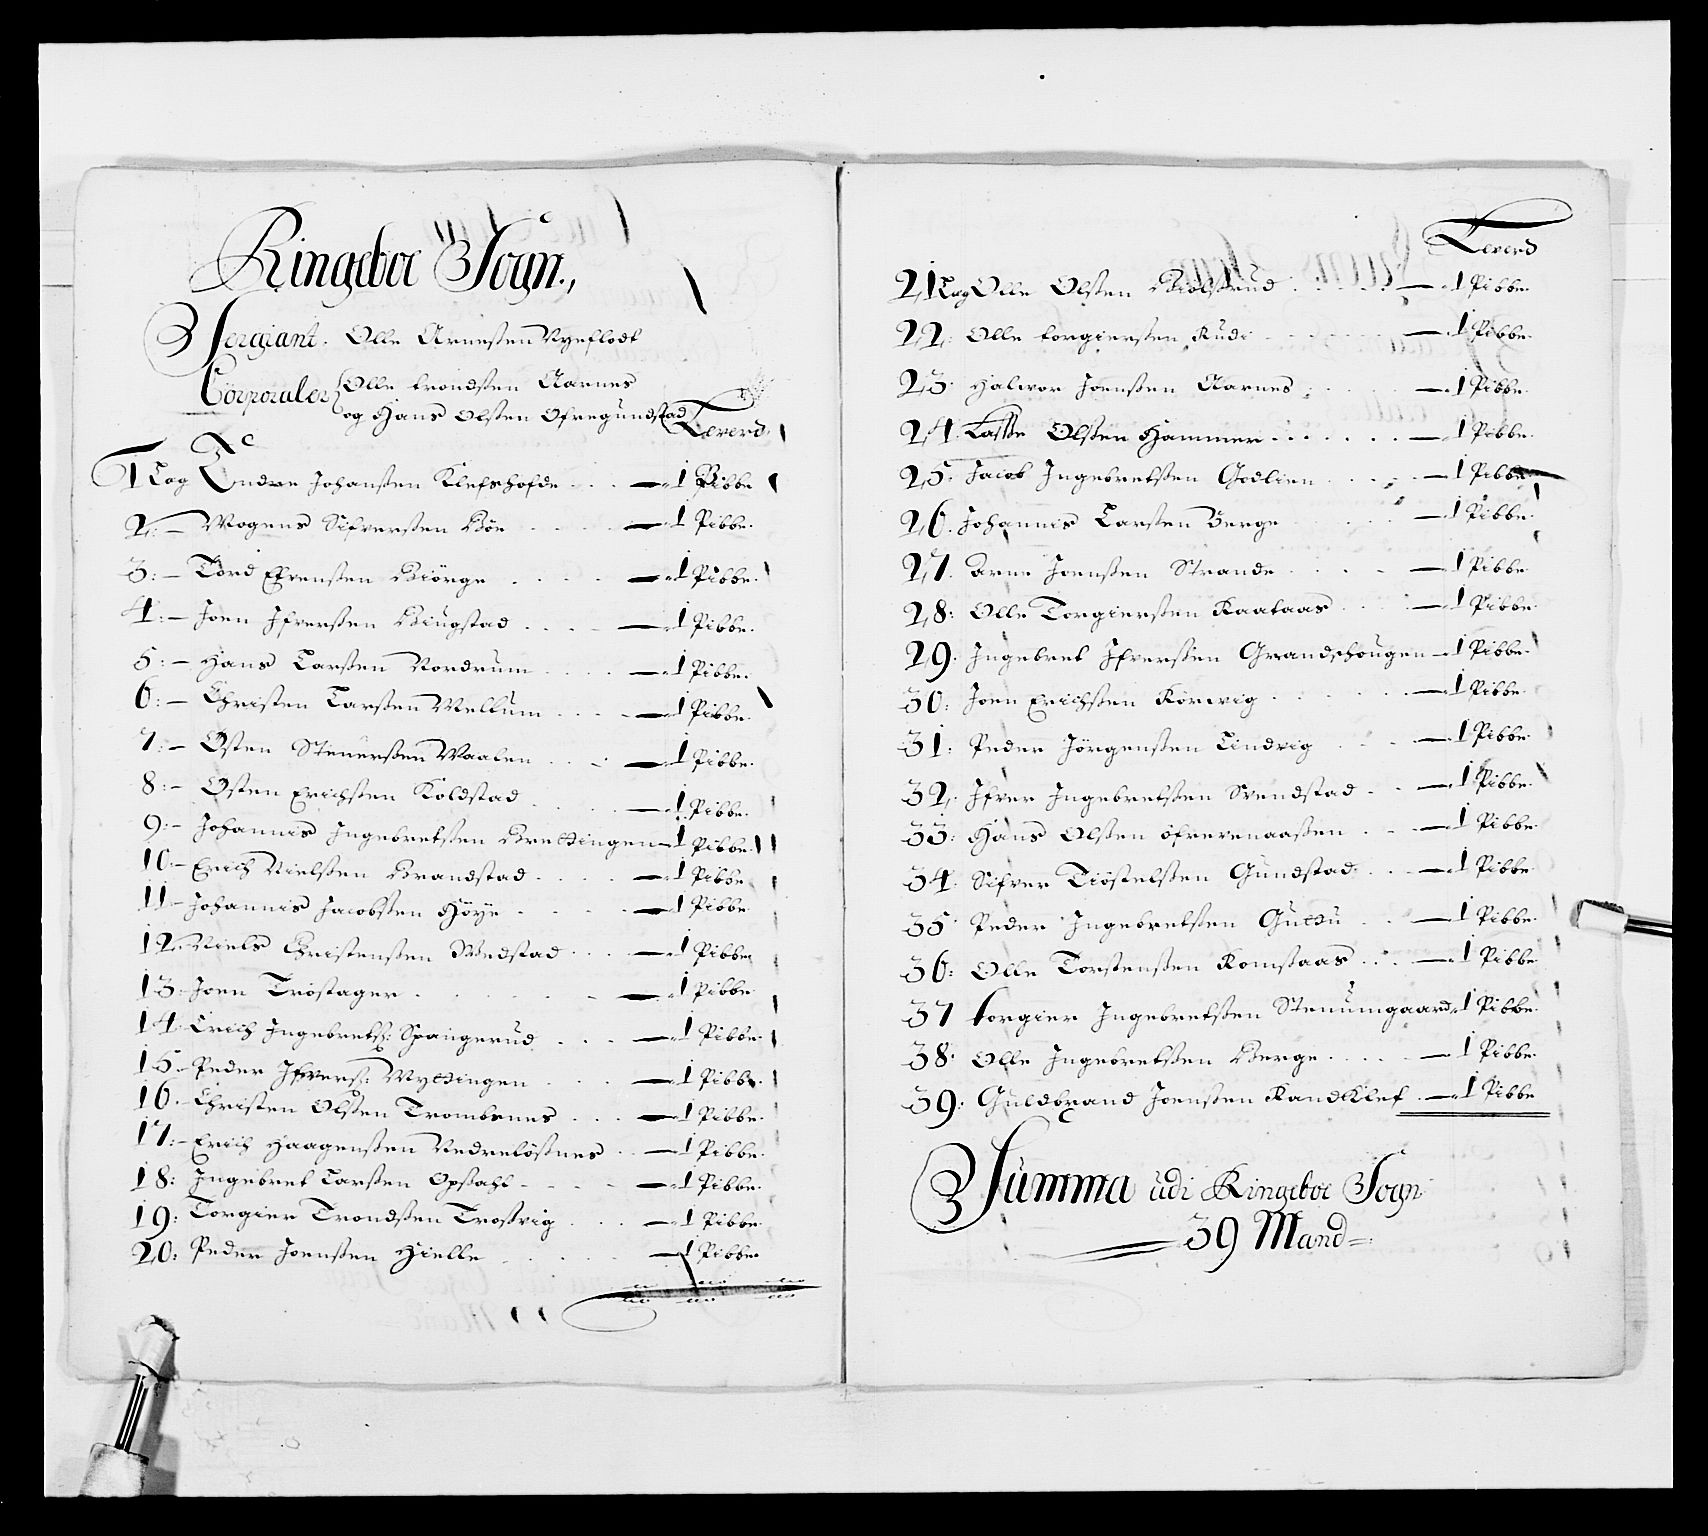 Ringeboe Sogn.,
Sergiant. Olle Arneßen Nyeflodt
Corporaler Olle trondßen Aarnes
og Hans Olßen Ofregundstad
Leverd
1 Lag Endre Johanßen Klefshofde — 1 Pibbe
2: — Mogens Sifverßen Böe — 1 Pibbe.
3: — Tord Efvenßen Biörge — 1 Pibbe.
4: — Joen Ifverßen Biugstad — 1 Pibbe.
5: — Hans Larßen Nordrum — 1 Pibbe.
6: — Christen Larßen Mellum — 1 Pibbe.
7: — Östen Steuerßen Waalen — 1 Pibbe.
8: — Östen Erichßen Koldstad — 1 Pibbe.
9: — Johannis Ingebretßen Brettingen — 1 Pibbe.
10: — Erich Nielßen Brandstad — 1 Pibbe
11 — Johannis Jacobßen Höye — 1 Pibbe
12. Niels Christenßen Wedstad — 1 Pibbe
13. Joen Tröstager — 1 Pibbe
14. Erich Ingebretß: Spangerud — 1 Pibbe.
15. Peder Ifverß: Myttingen — 1 Pibbe.
16. Christen Olßen Trombsnes — 1 Pibbe.
17: — Erich Haagenßen Nedrelößnes — 1 Pibbe.
18: Ingebret Larßen Opsahl — 1 Pibbe.
19: Torgier Trondßen Troßvig — 1 Pibbe.
20: Peder Joenßen Hielle — 1 Pibbe.
Leverd
21 Lag Olle Olßen Biölstrud — 1 Pibbe.
22: Olle torgierßen Rudi — 1 Pibbe.
23: Halvor Joenßen Aarnes — 1 Pibbe.
24. Laße Olßen Hammer — 1 Pibbe.
25: Jacob Ingebretßen Godlien — 1 Pibbe
26. Johannis Larßen Berge — 1 Pibbe.
27. Arne Joenßen Strande — 1 Pibbe
28: Olle Torgierßen Kaataas — 1 Pibbe.
29. Ingebret Ifverßen Grandshougen — 1 Pibbe.
30: Joen Erichßen Körvig — 1 Pibbe.
31: Peder Jörgenßen Lindvig — 1 Pibbe.
32: Ifver Ingebretßen Svendstad — 1 Pibbe.
33: Hans Olßen öfrevenaaßen — 1 Pibbe.
34: Sifver Tiöstelßen Gundstad — 1 Pibbe
35: Peder Ingebretßen Guttu — 1 Pibbe.
36: Olle Torstenßen Romsaas — 1 Pibbe
37 torgier Ingebretßen Stenumgaard 1 Pibbe.
38: Olle Ingebretßen Berge — 1 Pibbe.
39: Guldbrand Joenßen Randklef — 1 Pibbe
Summa udi Ringeboe Sogn
39 Mand